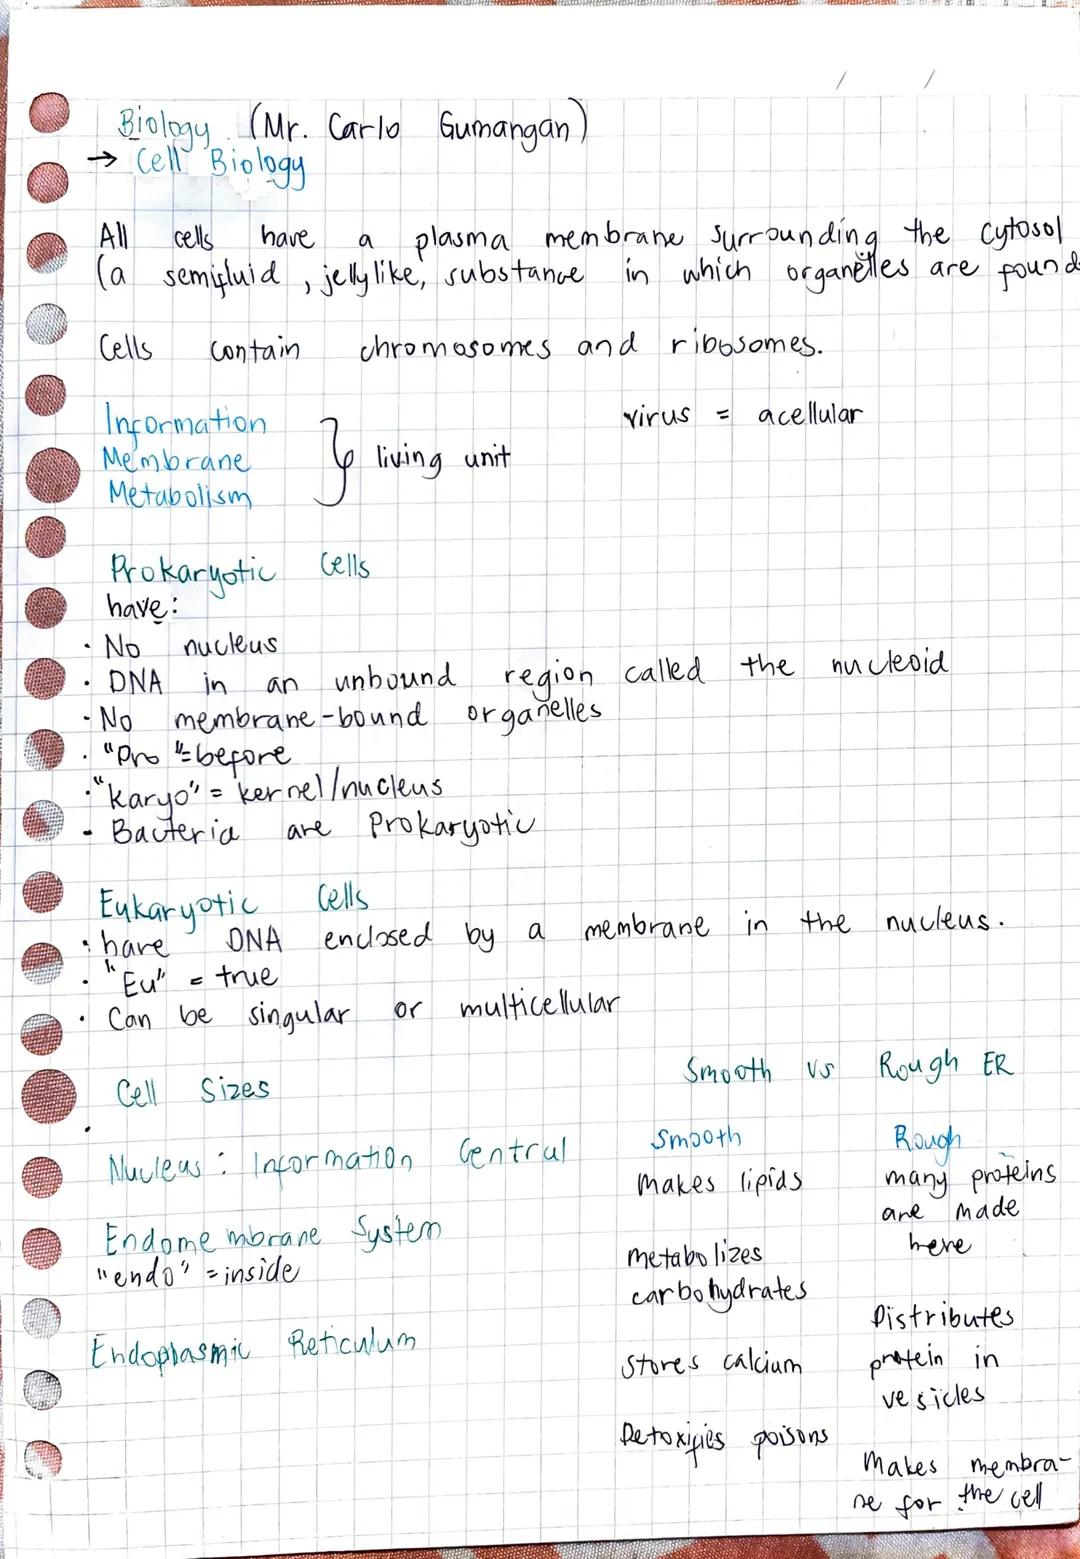 Biology (Mr. Carlo Gumangan)
→ Cell Biology
All cells have a plasma membrane surrounding the cytosol
(a semifluid, jellylike, substance in which organelles are found
Cells contain chromosomes and ribosomes.
Information
Membrane
Metabolism
} living unit
virus = acellular
Prokaryotic Cells
have:
· No nucleus
· DNA in an unbound region called the nucleoid
· No membrane-bound organelles
· "Pro" = before
· "karyo" = kernel/nucleus
- Bacteria are Prokaryotic
Eukaryotic Cells
· have DNA enclosed by a membrane in the nucleus.
· "Eu" = true
· Can be singular or multicellular
Cell Sizes
Nucleus: Information Central
Endomembrane System
"endo" = inside
Endoplasmic Reticulum
Smooth vs Rough ER
Smooth
Makes lipids
metabolizes
carbohydrates
Stores calcium
Detoxifies poisons
Rough
many proteins
are made
here
Distributes
protein in
vesicles
Makes membra-
ne for the cell